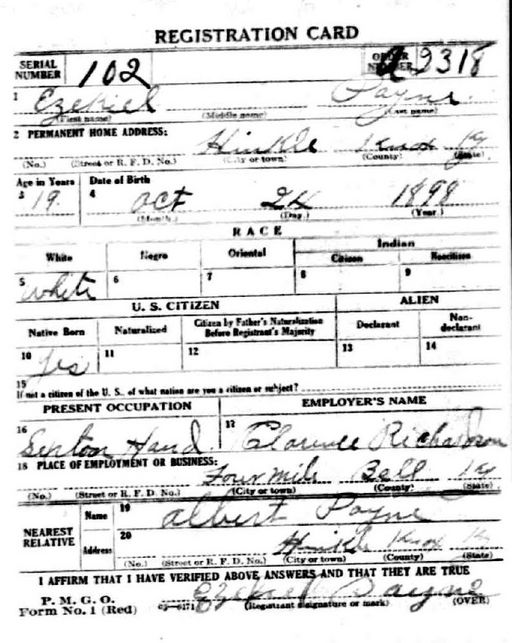 REGISTRATION CARD
SERIAL NUMBER 102 ORDER NUMBER A2318
1 Ezekiel Payne
(First name) (Middle name) (Last name)
2 PERMANENT HOME ADDRESS:
Hinkle Knox Ky
(No.) (Street or R. F. D. No.) (City or town) (County) (State)
Age in Years Date of Birth
3 19 4 Oct 24 1898
(Month.) (Day.) (Year.)
RACE
White Negro Oriental Indian
Citizen Noncitizen
5 White 6 7 8 9
U. S. CITIZEN ALIEN
Native Born Naturalized Citizen by Father's Naturalization Before Registrant's Majority Declarant Non-declarant
10 Yes 11 12 13 14
15
If not a citizen of the U. S., of what nation are you a citizen or subject?
PRESENT OCCUPATION EMPLOYER'S NAME
16 Hand 17 Clarence Richardson
18 PLACE OF EMPLOYMENT OR BUSINESS:
Four mile Bell Ky
(No.) (Street or R. F. D. No.) (City or town) (County) (State)
NEAREST RELATIVE
Name 19 Albert Payne
Address 20 Hinkle Knox Ky
(No.) (Street or R. F. D. No.) (City or town) (County) (State)
I AFFIRM THAT I HAVE VERIFIED ABOVE ANSWERS AND THAT THEY ARE TRUE
P. M. G. O.
Form No. 1 (Red) 03—6171 Ezekiel Payne
(Registrant's signature or mark) (OVER)